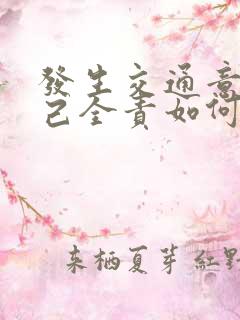 發生交通意
己全責如何
来栖夏芽紅黑